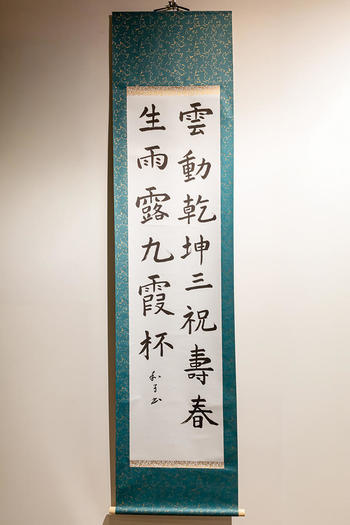 雲動乾坤三祝壽春
生雨露九霞杯
和子書